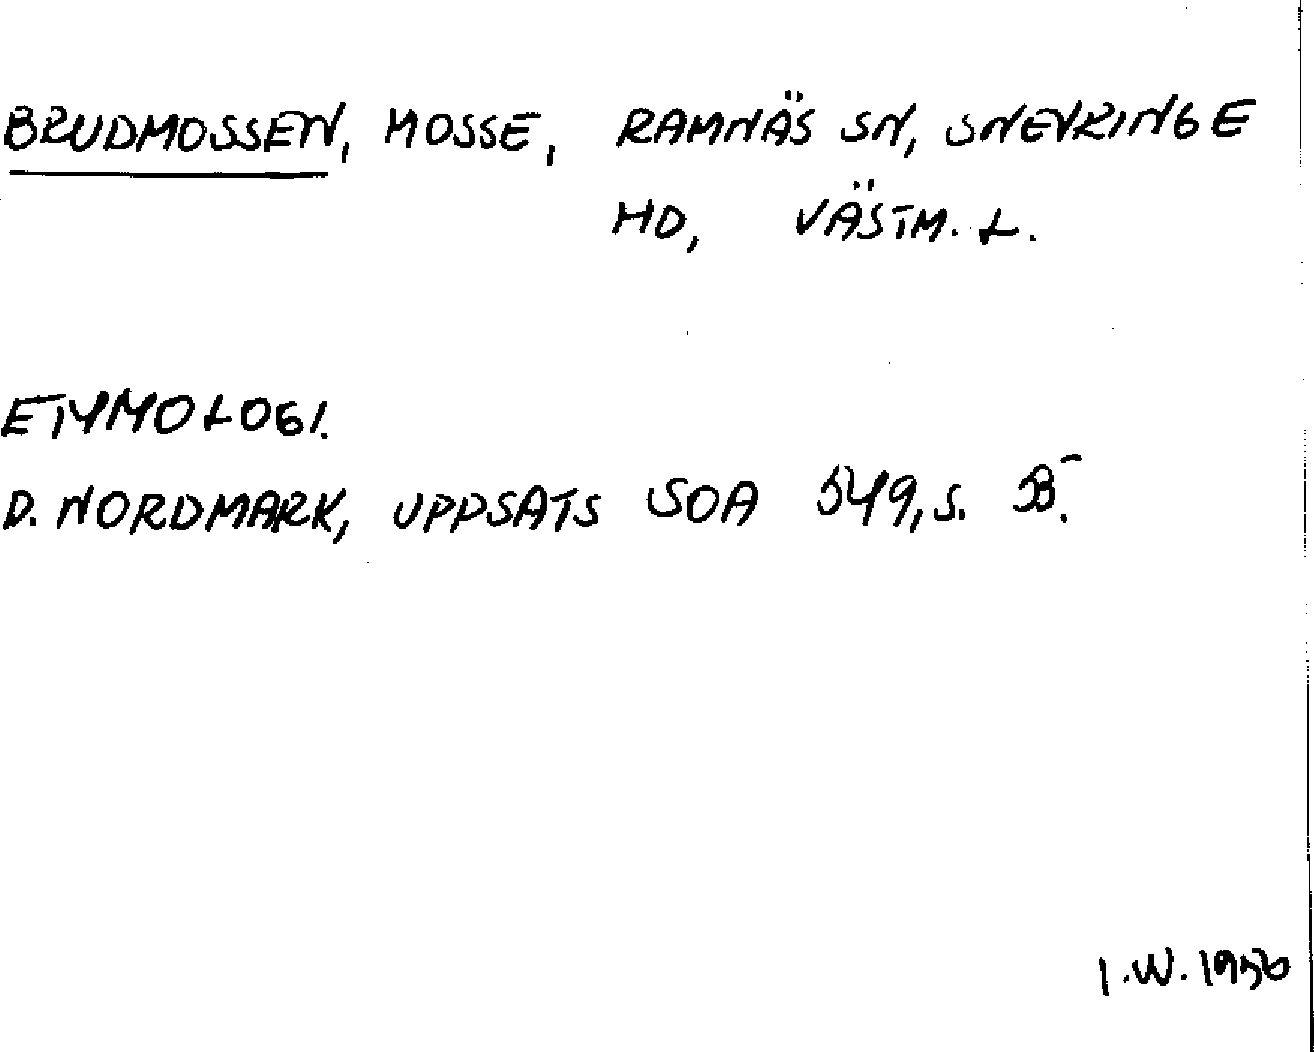 BRUDMOSSEN, MOSSE, RAMNÄS SN, SNEVRINGE
HD, VÄSTM. L.
ETYMOLOGI.
D. NORDMARK, UPPSATS SOA 549, S.
I.W. 1956